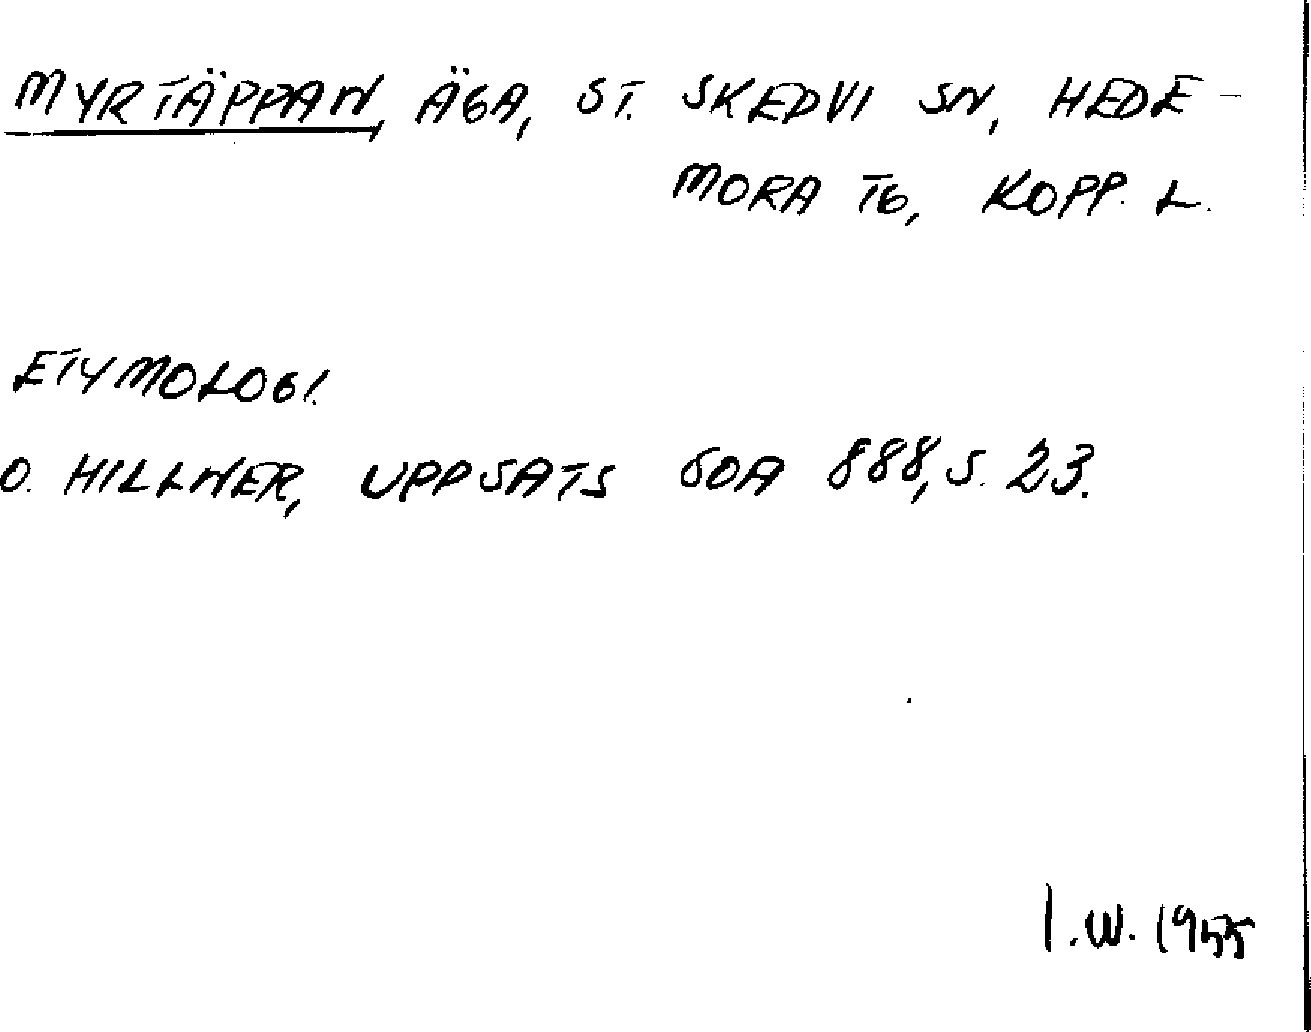 MYRTÄPPAN, ÄGA, ST. SKEDVI SN, HEDE-
MORA TG, KOPP. L.
ETYMOLOGI.
O. HILLNER, UPPSATS GOA 888, S. 23.
I.W. 1955